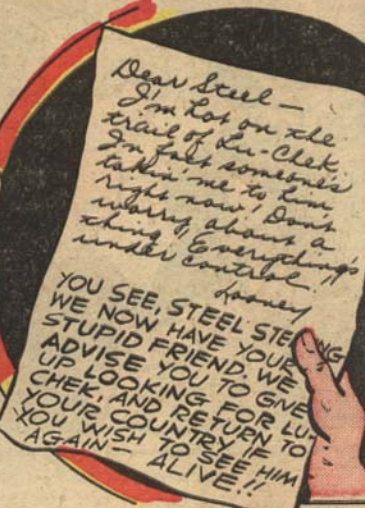 Dear Steel —
I'm hot on the
trail of Lu-Chek.
In fact someone's
takin' me to him
right now! Don't
worry about a
thing! Everything's
under control!
Looney
YOU SEE, STEEL STE NG
WE NOW HAVE YOUR
STUPID FRIEND. WE
ADVISE YOU TO GIVE
UP LOOKING FOR LU-
CHEK, AND RETURN TO
YOUR COUNTRY IF
YOU WISH TO SEE HIM
AGAIN — ALIVE!!